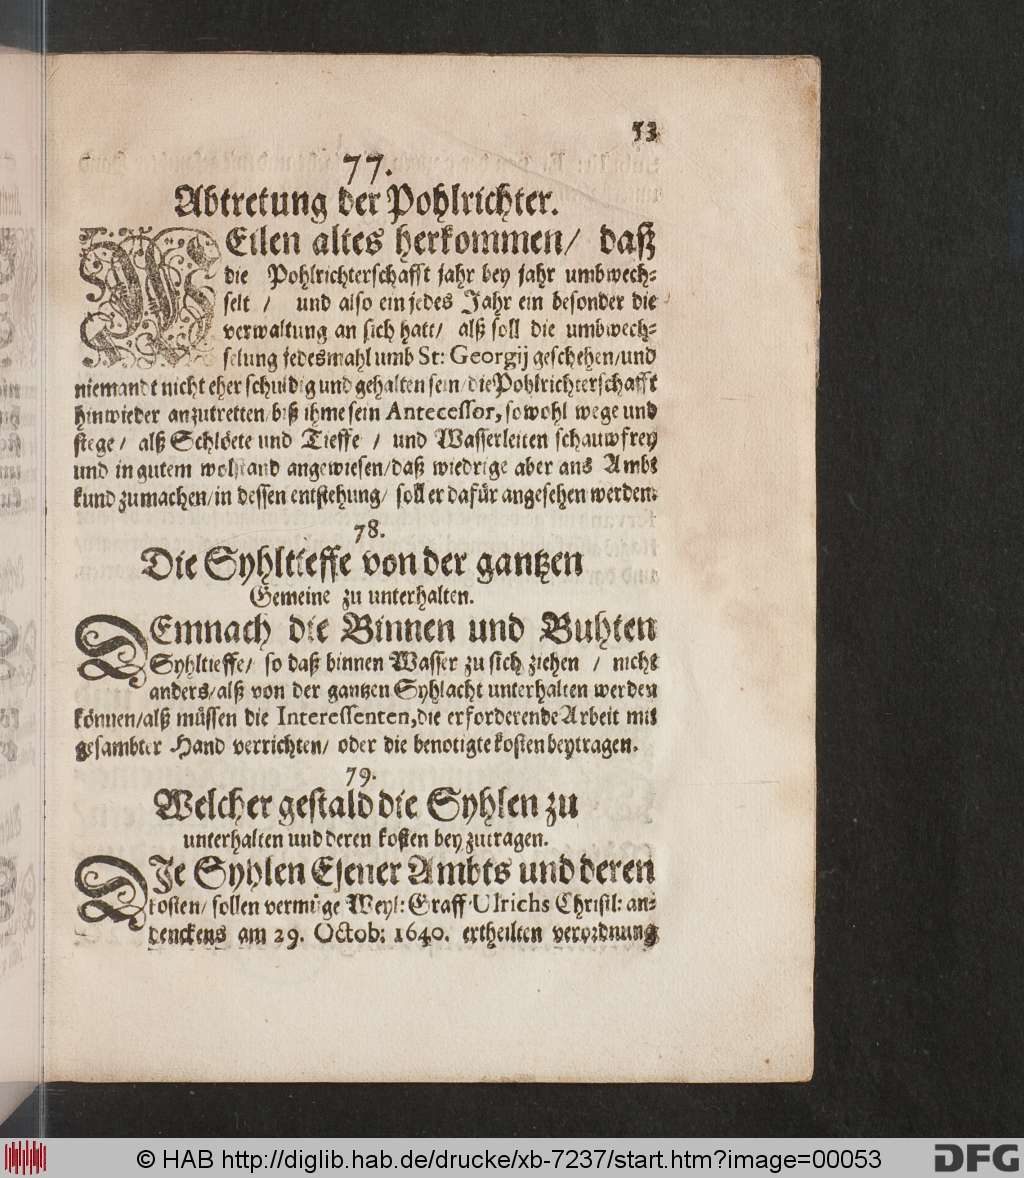 53
77.
Abtretung der Pohlrichter.
WEilen altes herkommen/ daß
die Pohlrichterschafft jahr bey jahr umbwech-
selt / und also ein jedes Jahr ein besonder die
verwaltung an sich hatt/ alß soll die umbwech-
selung jedesmahl umb St: Georgij geschehen/und
niemandt nicht eher schuldig und gehalten sein/die Pohlrichterschafft
hinwieder anzutretten/biß ihme sein Antecessor, sowohl wege und
stege/ alß Schlöete und Tieffe / und Wasserleiten schauwfrey
und in gutem wolstand angewiesen/daß wiedrige aber ans Ambt
kund zumachen/in dessen entstehung/ soll er dafür angesehen werden.
78.
Die Syhltieffe von der gantzen
Gemeine zu unterhalten.
DEmnach die Binnen und Buhten
Syhltieffe/ so daß binnen Wasser zu sich ziehen / nicht
anders/alß von der gantzen Syhlacht unterhalten werden
können/alß müssen die Interessenten,die erforderende Arbeit mit
gesambter Hand verrichten/ oder die benotigte kosten beytragen.
79.
Welcher gestald die Syhlen zu
unterhalten und deren kosten bey zutragen.
DIe Syhlen Esener Ambts und deren
kosten/ sollen vermüge Weyl: Graff Ulrichs Christl: an-
denckens am 29. Octob: 1640. ertheilten verordnung
© HAB http://diglib.hab.de/drucke/xb-7237/start.htm?image=00053
DFG